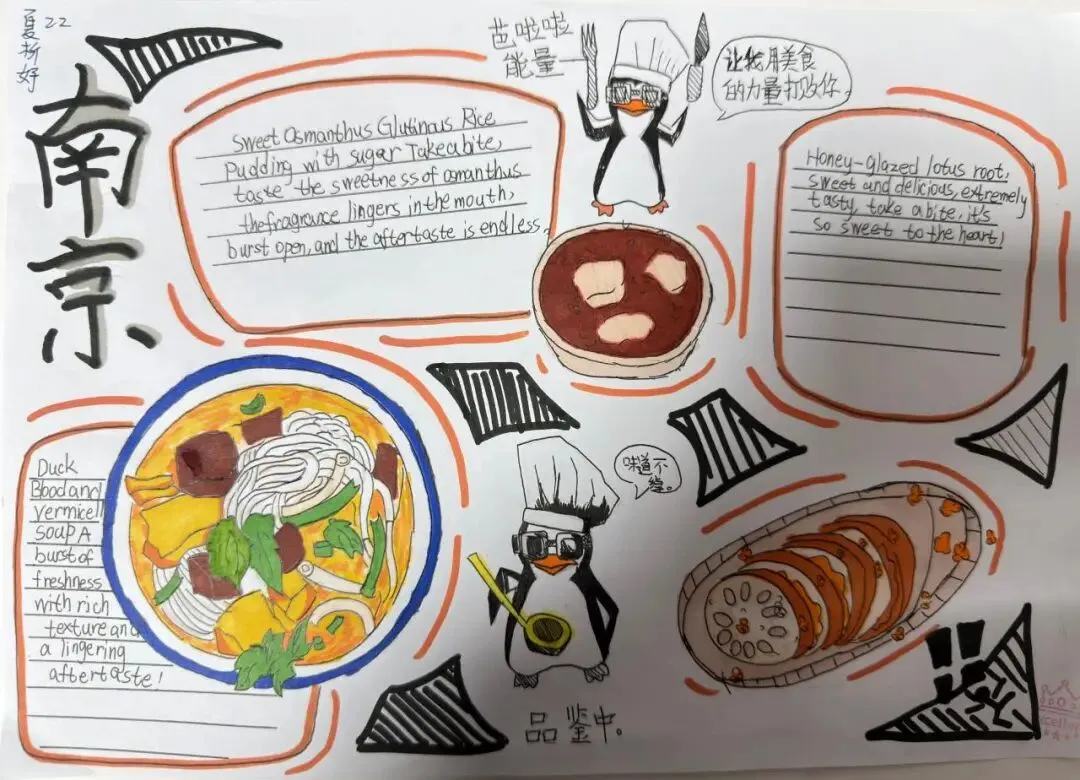 22
夏析好
南京
芭啦啦
能量
让我用美食
的力量打败你。
Sweet Osmanthus Glutinous Rice
Pudding with sugar Takeabite,
taste the sweetness of omanthus
thefragrance lingers in the mouth,
burst open, and the aftertaste is endless.
Honey-glazed lotus root,
sweet and delicious, extremely
tasty, take a bite, it's
so sweet to the heart!
Duck
Blood and
vermicell
soap A
burst of
freshness
with rich
texture and
a lingering
aftertaste!
味道不
错。
品鉴中。